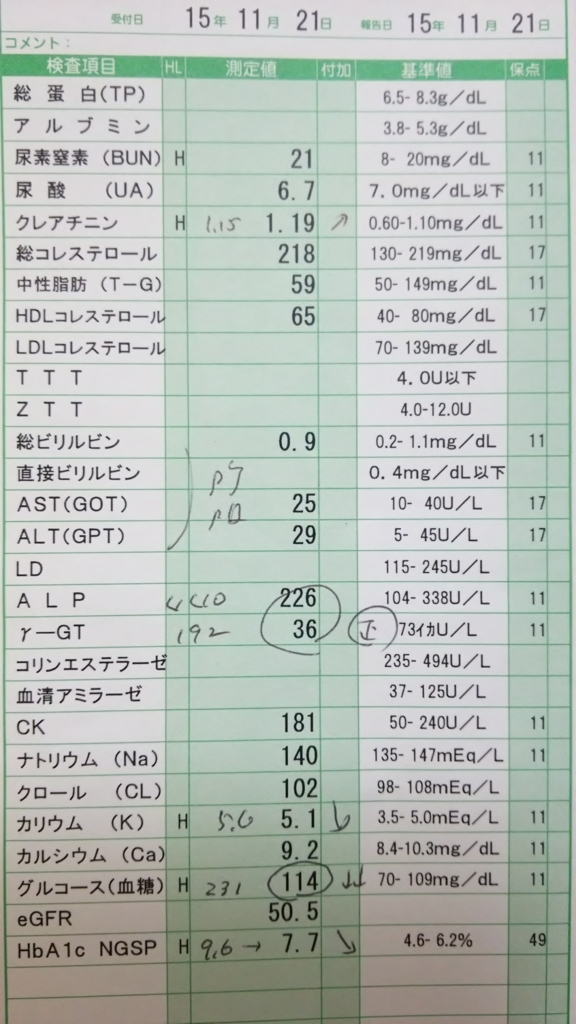 受付日 15年 11月 21日 報告日 15年 11月 21日
コメント：
検査項目 HL 測定値 付加 基準値 保点
総蛋白(TP) 6.5- 8.3g／dL
アルブミン 3.8- 5.3g／dL
尿素窒素（BUN） H 21 8- 20mg／dL 11
尿酸 （UA） 6.7 7.0mg／dL以下 11
クレアチニン H 1.15 1.19 ↗ 0.60-1.10mg／dL 11
総コレステロール 218 130- 219mg／dL 17
中性脂肪（T－G） 59 50- 149mg／dL 11
HDLコレステロール 65 40- 80mg／dL 17
LDLコレステロール 70- 139mg／dL
T T T 4.0U以下
Z T T 4.0-12.0U
総ビリルビン 0.9 0.2- 1.1mg／dL 11
直接ビリルビン 0.4mg／dL以下
AST(GOT) 25 10- 40U／L 17
ALT(GPT) 29 5- 45U／L 17
LD 115- 245U／L
A L P 440 226 104- 338U／L 11
γ－GT 192 36 正 73イカU／L 11
コリンエステラーゼ 235- 494U／L
血清アミラーゼ 37- 125U／L
CK 181 50- 240U／L 11
ナトリウム（Na） 140 135- 147mEq／L 11
クロール （CL） 102 98- 108mEq／L
カリウム （K） H 5.6 5.1 ↓ 3.5- 5.0mEq／L 11
カルシウム（Ca） 9.2 8.4-10.3mg／dL 11
グルコース(血糖) H 231 114 ↓↓ 70- 109mg／dL 11
eGFR 50.5
HbA1c NGSP H 9.6 → 7.7 ↘ 4.6- 6.2% 49